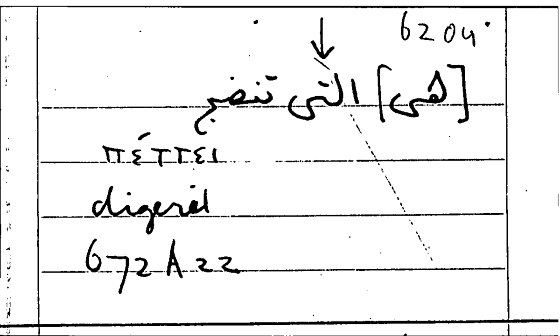 6204
[هى] التى تنضج
πέττει
digerit
672 A 22